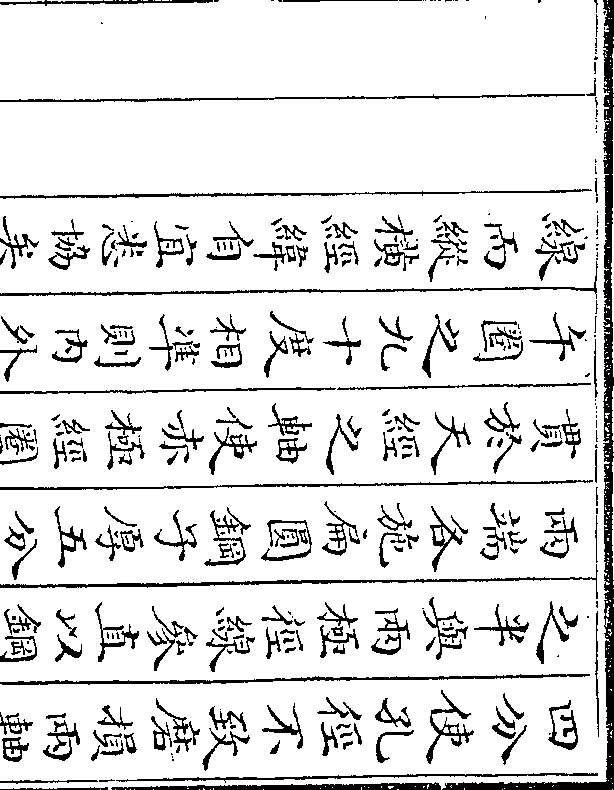 四分使孔徑不致磨損兩軸
之半與兩極徑線參直以鋼
兩端各施扁圓鋼子厚五分
貫於天經之軸使赤極經圈
午圈之九十度相準則內外
線而縱橫經緯自宜悉協矣